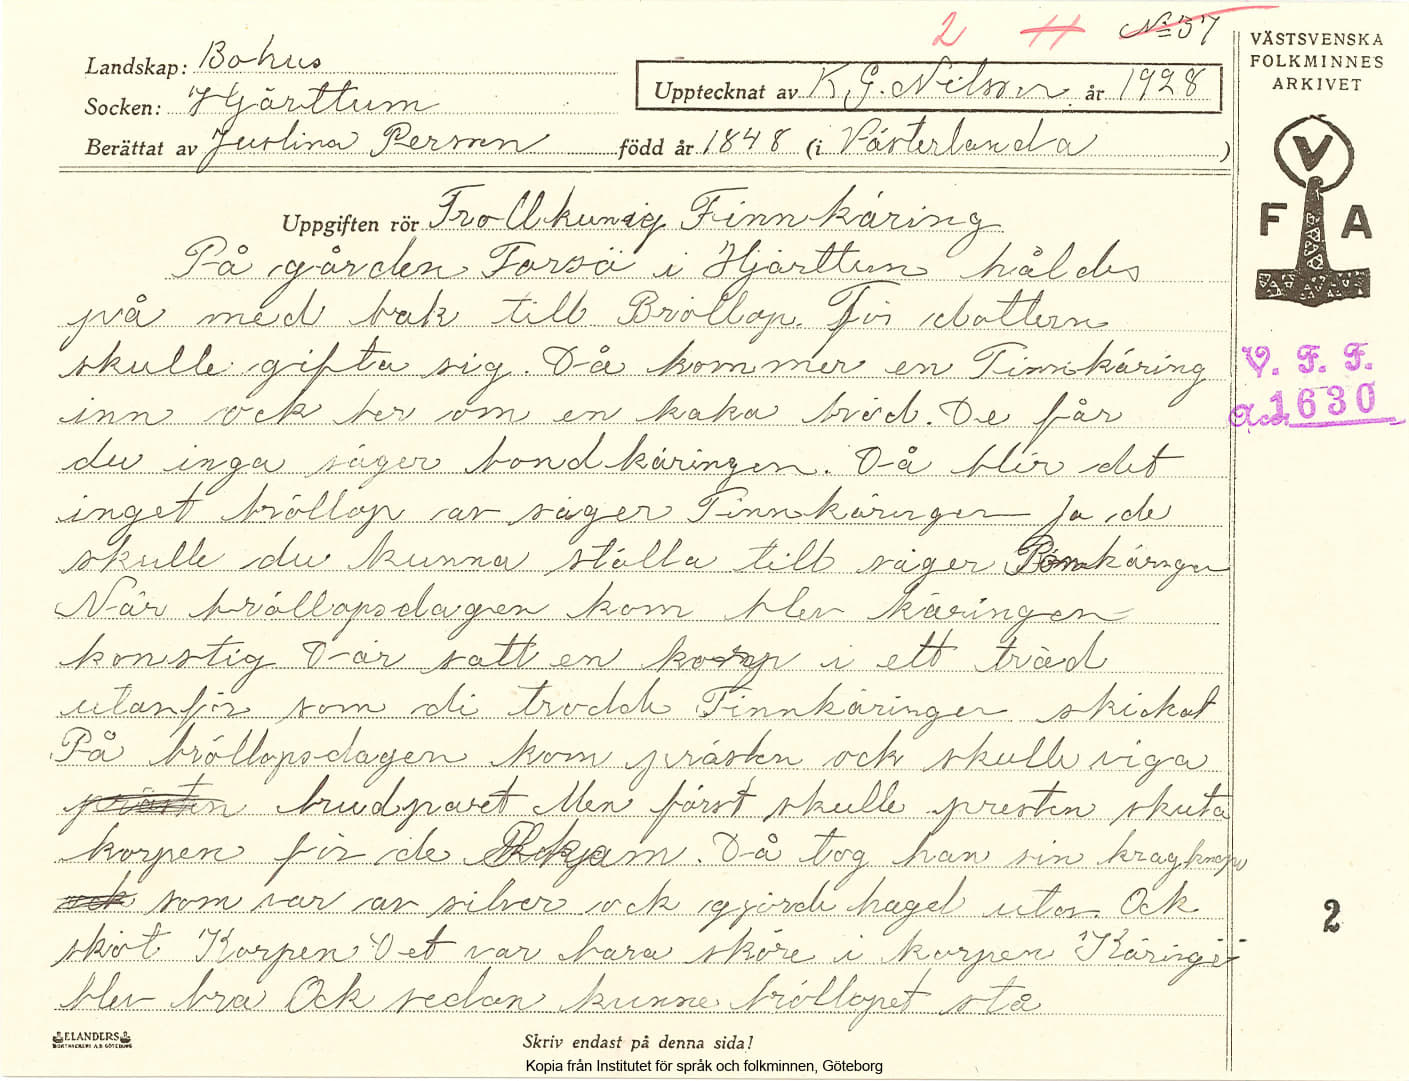 2 11 No 57
Landskap: Bohus
Socken: Hjärttum
Berättat av Justina Persson född år 1848 (i Västerlanda )
Upptecknat av K. G. Nilson år 1928
VÄSTSVENSKA
FOLKMINNES
ARKIVET
V
F A
V. F. F.
Acc. 1630
Uppgiften rör Trollkunig Finnkäring
På gården Torsö i Hjärttum håldes
på med bak till Bröllop. För dottern
skulle gifta sig. Då kommer en Finnkäring
inn ock ber om en kaka bröd. De får
du inga säger bondkäringen. Då blir det
inget bröllop av säger Finnkäringen Ja de
skulle du kunna ställa till säger
När bröllopsdagen kom blev käringen
konstig Där satt en korp i ett träd
utanför som di trodde Finnkäringen skickat
På bröllopsdagen kom prästen ock skulle viga
prästen brudparet Men först skulle presten skuta
korpen för de. Då tog han sin kragknapp
ock som var av silver ock gjorde hagel utav. Ock
sköt Korpen Det var bara sköre i korpen
blev bra Ock sedan kunne bröllopet stå
2
ELANDERS
BOKTRYCKERI A.B. GÖTEBORG
Skriv endast på denna sida!
Kopia från Institutet för språk och folkminnen, Göteborg